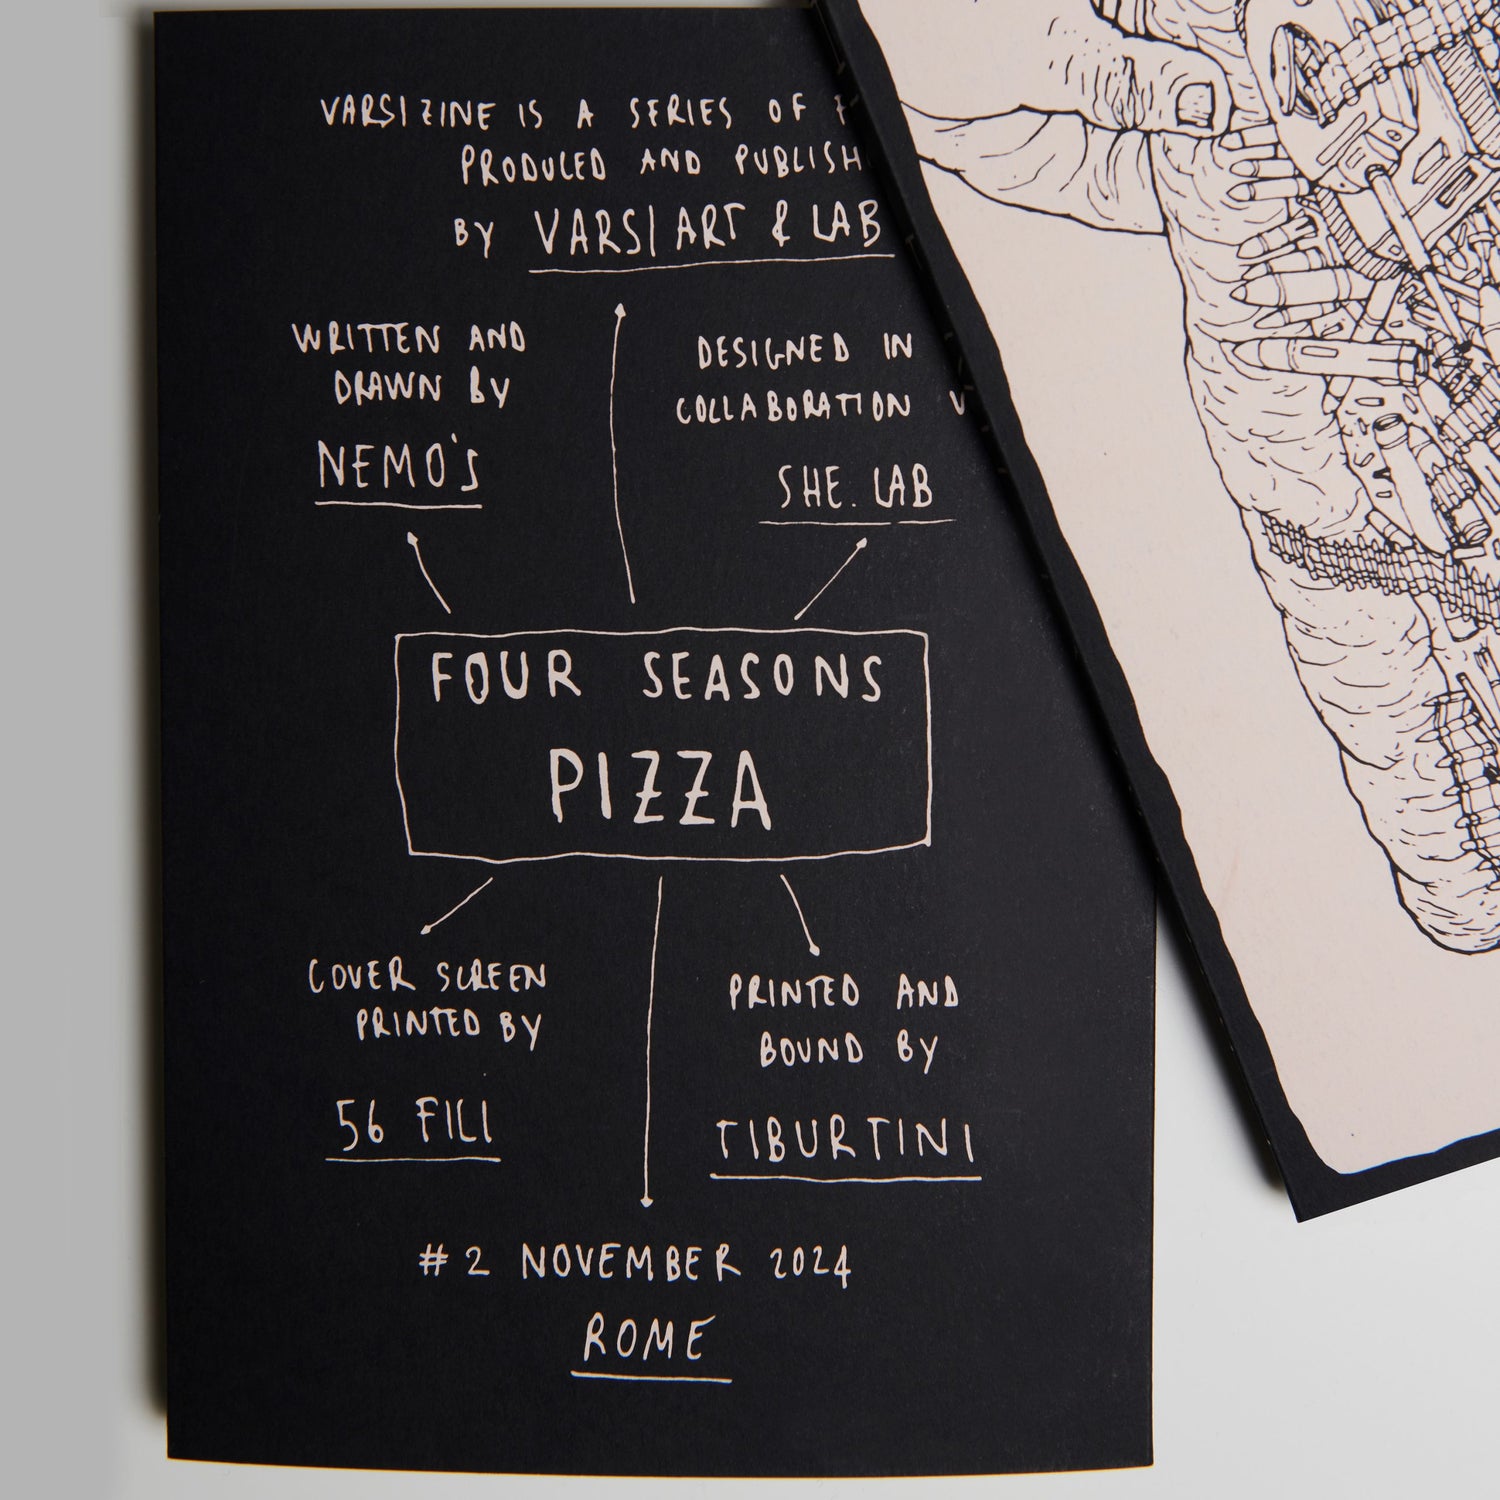 VARSIZINE IS A SERIES OF
PRODUCED AND
BY VARSI ART & LAB
WRITTEN AND
DRAWN BY
NEMO'S
DESIGNED IN
COLLABORATION
SHE. LAB
FOUR SEASONS
PIZZA
COVER SCREEN
PRINTED BY
56 FILI
PRINTED AND
BOUND BY
TIBURTINI
#2 NOVEMBER 2024
ROME